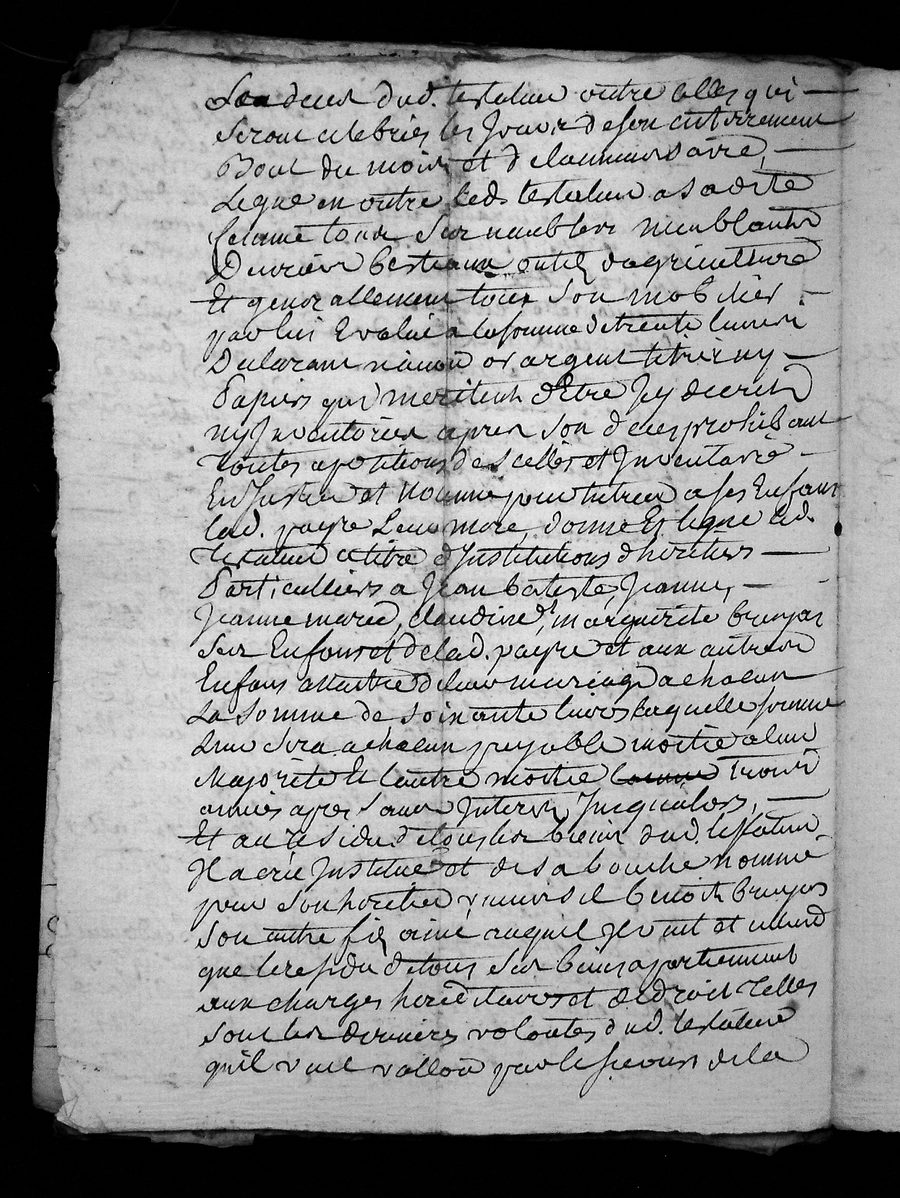 deces dud. testateur outre celles qui
seront celebrées les jours de son enterrement
Bout du mois et de lanniversaire,
Legue en outre led. testateur a sa dite
femme tous ses meubles meublants
Denrées bestiaux outils dagriculture
Et generallement tous son mobilier
par lui Evalué a la somme de trente livres
Declarant n'avoir or argent titres ny
Papiers qui meritent d'Etre Jcy decrits
ny Jnventoriés apres son deces prohibant
toutes apositions de scellés et Jnventaire
En Justice et nomme pour tutrice a ses Enfans
lad. payre Leur mere, donne Et legue led.
testateur a titre d'Jnstitutions dheritiers
Particulliers a Jean batiste, Jeanne,
Jeanne marie, claudine Et marguerite bruyas
ses Enfans et de lad. payre et aux autres
Enfans a naitre de leur mariage a chacun
La somme de soixante livres laquelle somme
Leur sera a chacun payable moitié a leur
Majorité Et lautre moitié trois
années apres sans Jnterets Jusqualors,
Et au residu de tous les biens dud. testateur
Jl a crée Jnstitué et de sa bouche nommé
pour son heritier universel benoit bruyas
son autre fils ainé auquel Jl veut et entend
que le residu de tous ses biens apartiennent
aux charges hereditaires et de droit telles
sont les dernieres volontés dud. testateur
qu'il veut valloir par le secours de la